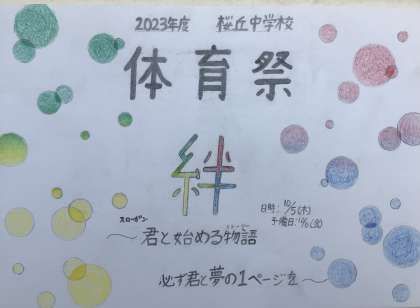 2023年度 桜丘中学校
体育祭
絆
スローガン
日時:10/5(木)
予備日:10/6(金)
～君と始める物語
ストーリー
必ず君と夢の1ページを～